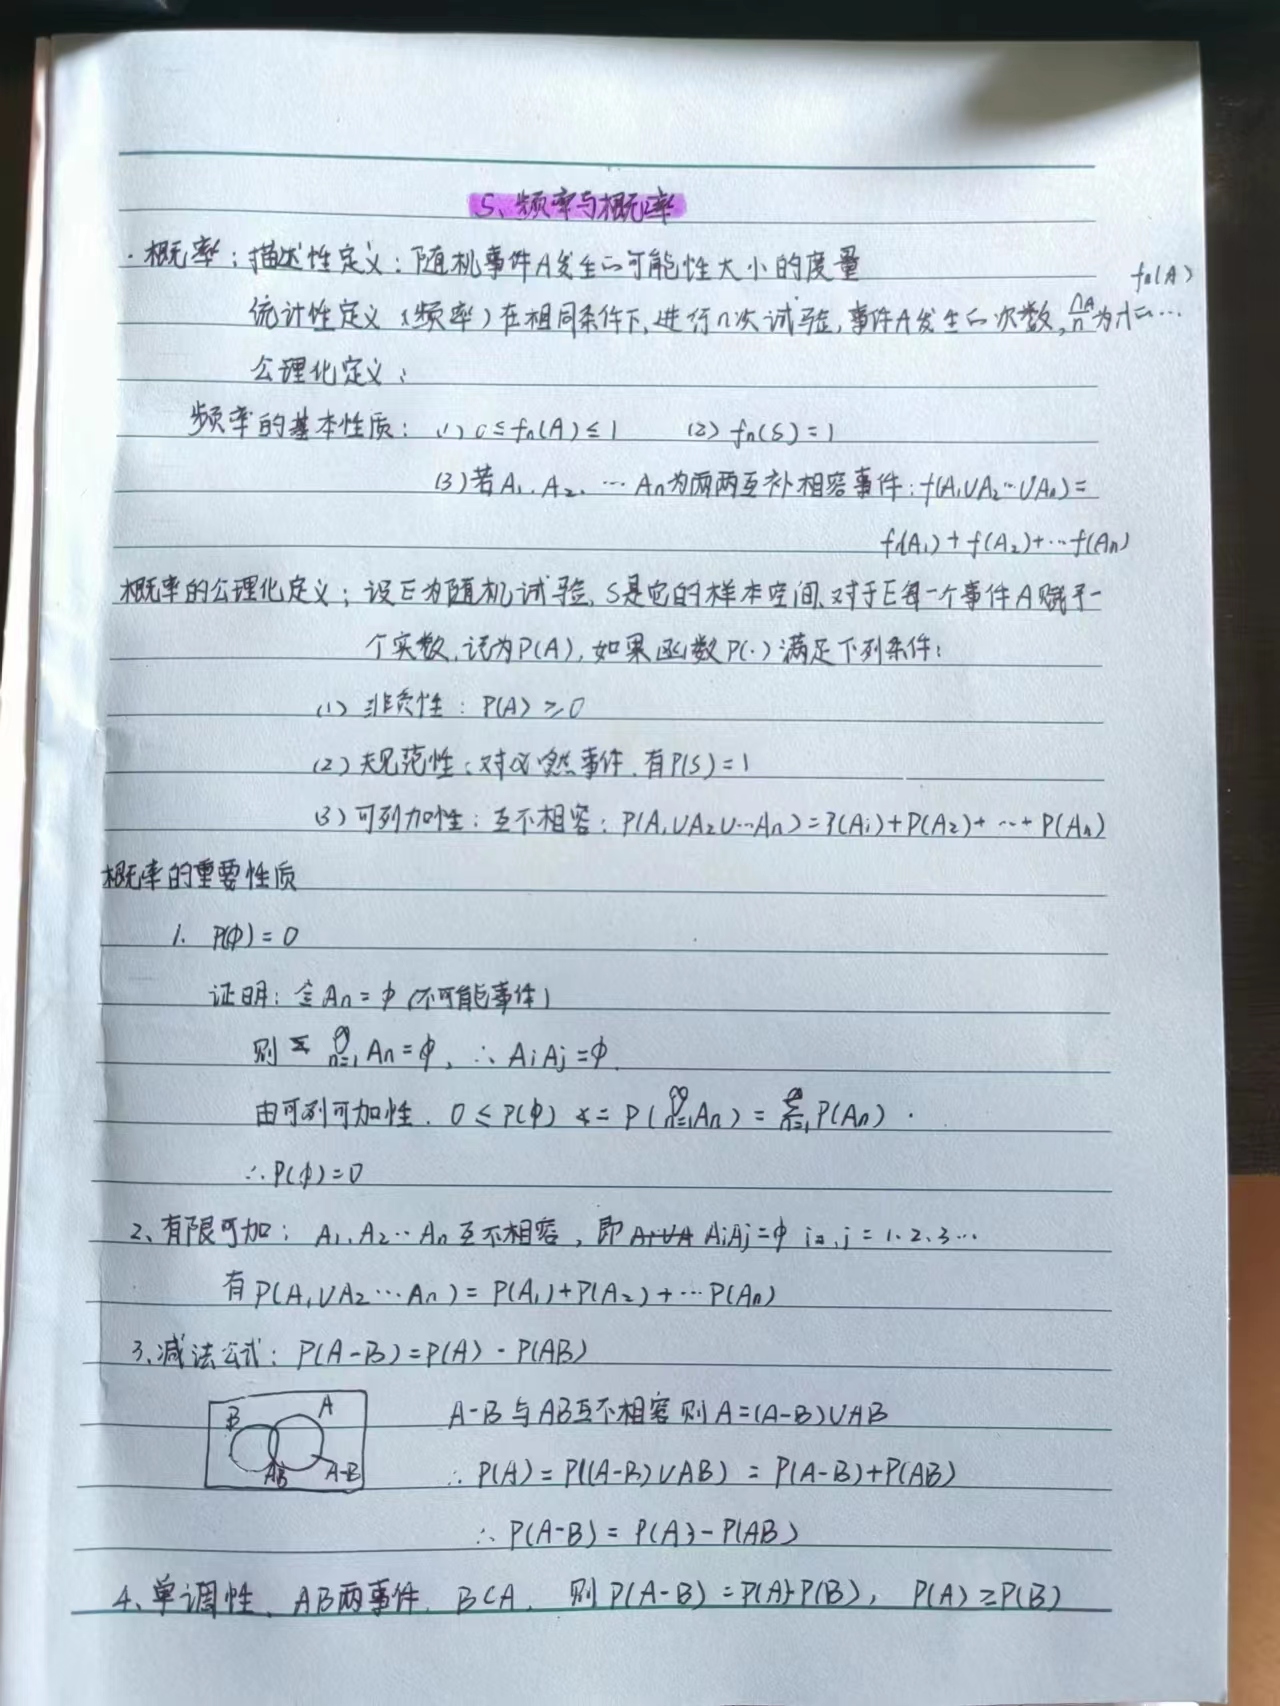 5、频率与概率
·概率：描述性定义：随机事件A发生的可能性大小的度量
fn(A)
统计性定义（频率）在相同条件下,进行n次试验,事件A发生的次数, nA/n 为
公理化定义：
频率的基本性质：(1) 0≤fn(A)≤1 (2) fn(S)=1
(3)若A₁、A₂、…An为两两互补相容事件：f(A₁∪A₂…∪An)=
f(A₁)+f(A₂)+…f(An)
概率的公理化定义：设E为随机试验、S是它的样本空间、对于E每一个事件A赋予一
个实数,记为P(A),如果函数P(·)满足下列条件：
(1) 非负性：P(A)≥0
(2) 规范性：对必然事件、有P(S)=1
(3) 可列加性：互不相容：P(A₁∪A₂∪…An)=P(A₁)+P(A₂)+…+P(An)
概率的重要性质
1. P(φ)=0
证明：令An=φ (不可能事件)
则 ∞∪n=1 An=φ, ∴AiAj=φ.
由可列可加性、0≤P(φ)=P(∞∪n=1 An)=∞Σn=1 P(An).
∴P(φ)=0
2、有限可加：A₁、A₂…An互不相容，即 AiAj=φ i,j=1、2、3…
有P(A₁∪A₂…An)=P(A₁)+P(A₂)+…P(An)
3、减法公式：P(A-B)=P(A)-P(AB)
B A AB A-B
A-B与AB互不相容则A=(A-B)∪AB
∴P(A)=P((A-B)∪AB)=P(A-B)+P(AB)
∴P(A-B)=P(A)-P(AB)
4、单调性、AB两事件、B⊂A、则P(A-B)=P(A)-P(B)，P(A)≥P(B)